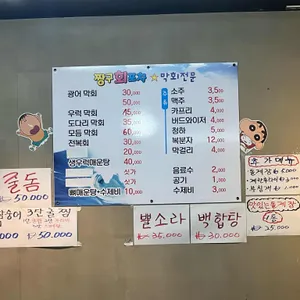 짱구회포차 ☆ 막회전문
광어 막회 30,000
50,000
우럭 막회 45,000
도다리 막회 35,000
모듬 막회 60,000
전복회 30,000
생우럭매운탕 40,000
싯가
싯가
뼈매운탕+수제비 10,000
소주 3,500
맥주 3,500
카프리 4,000
버드와이저 4,000
청하 5,000
복분자 12,000
막걸리 4,000
음료수 2,000
공기 1,000
수제비 3,000
줄돔
₩ 50,000
3만
₩50,000
뿔소라
₩ 35,000
백합탕
₩ 30,000
추가메뉴
맛있는
25,000